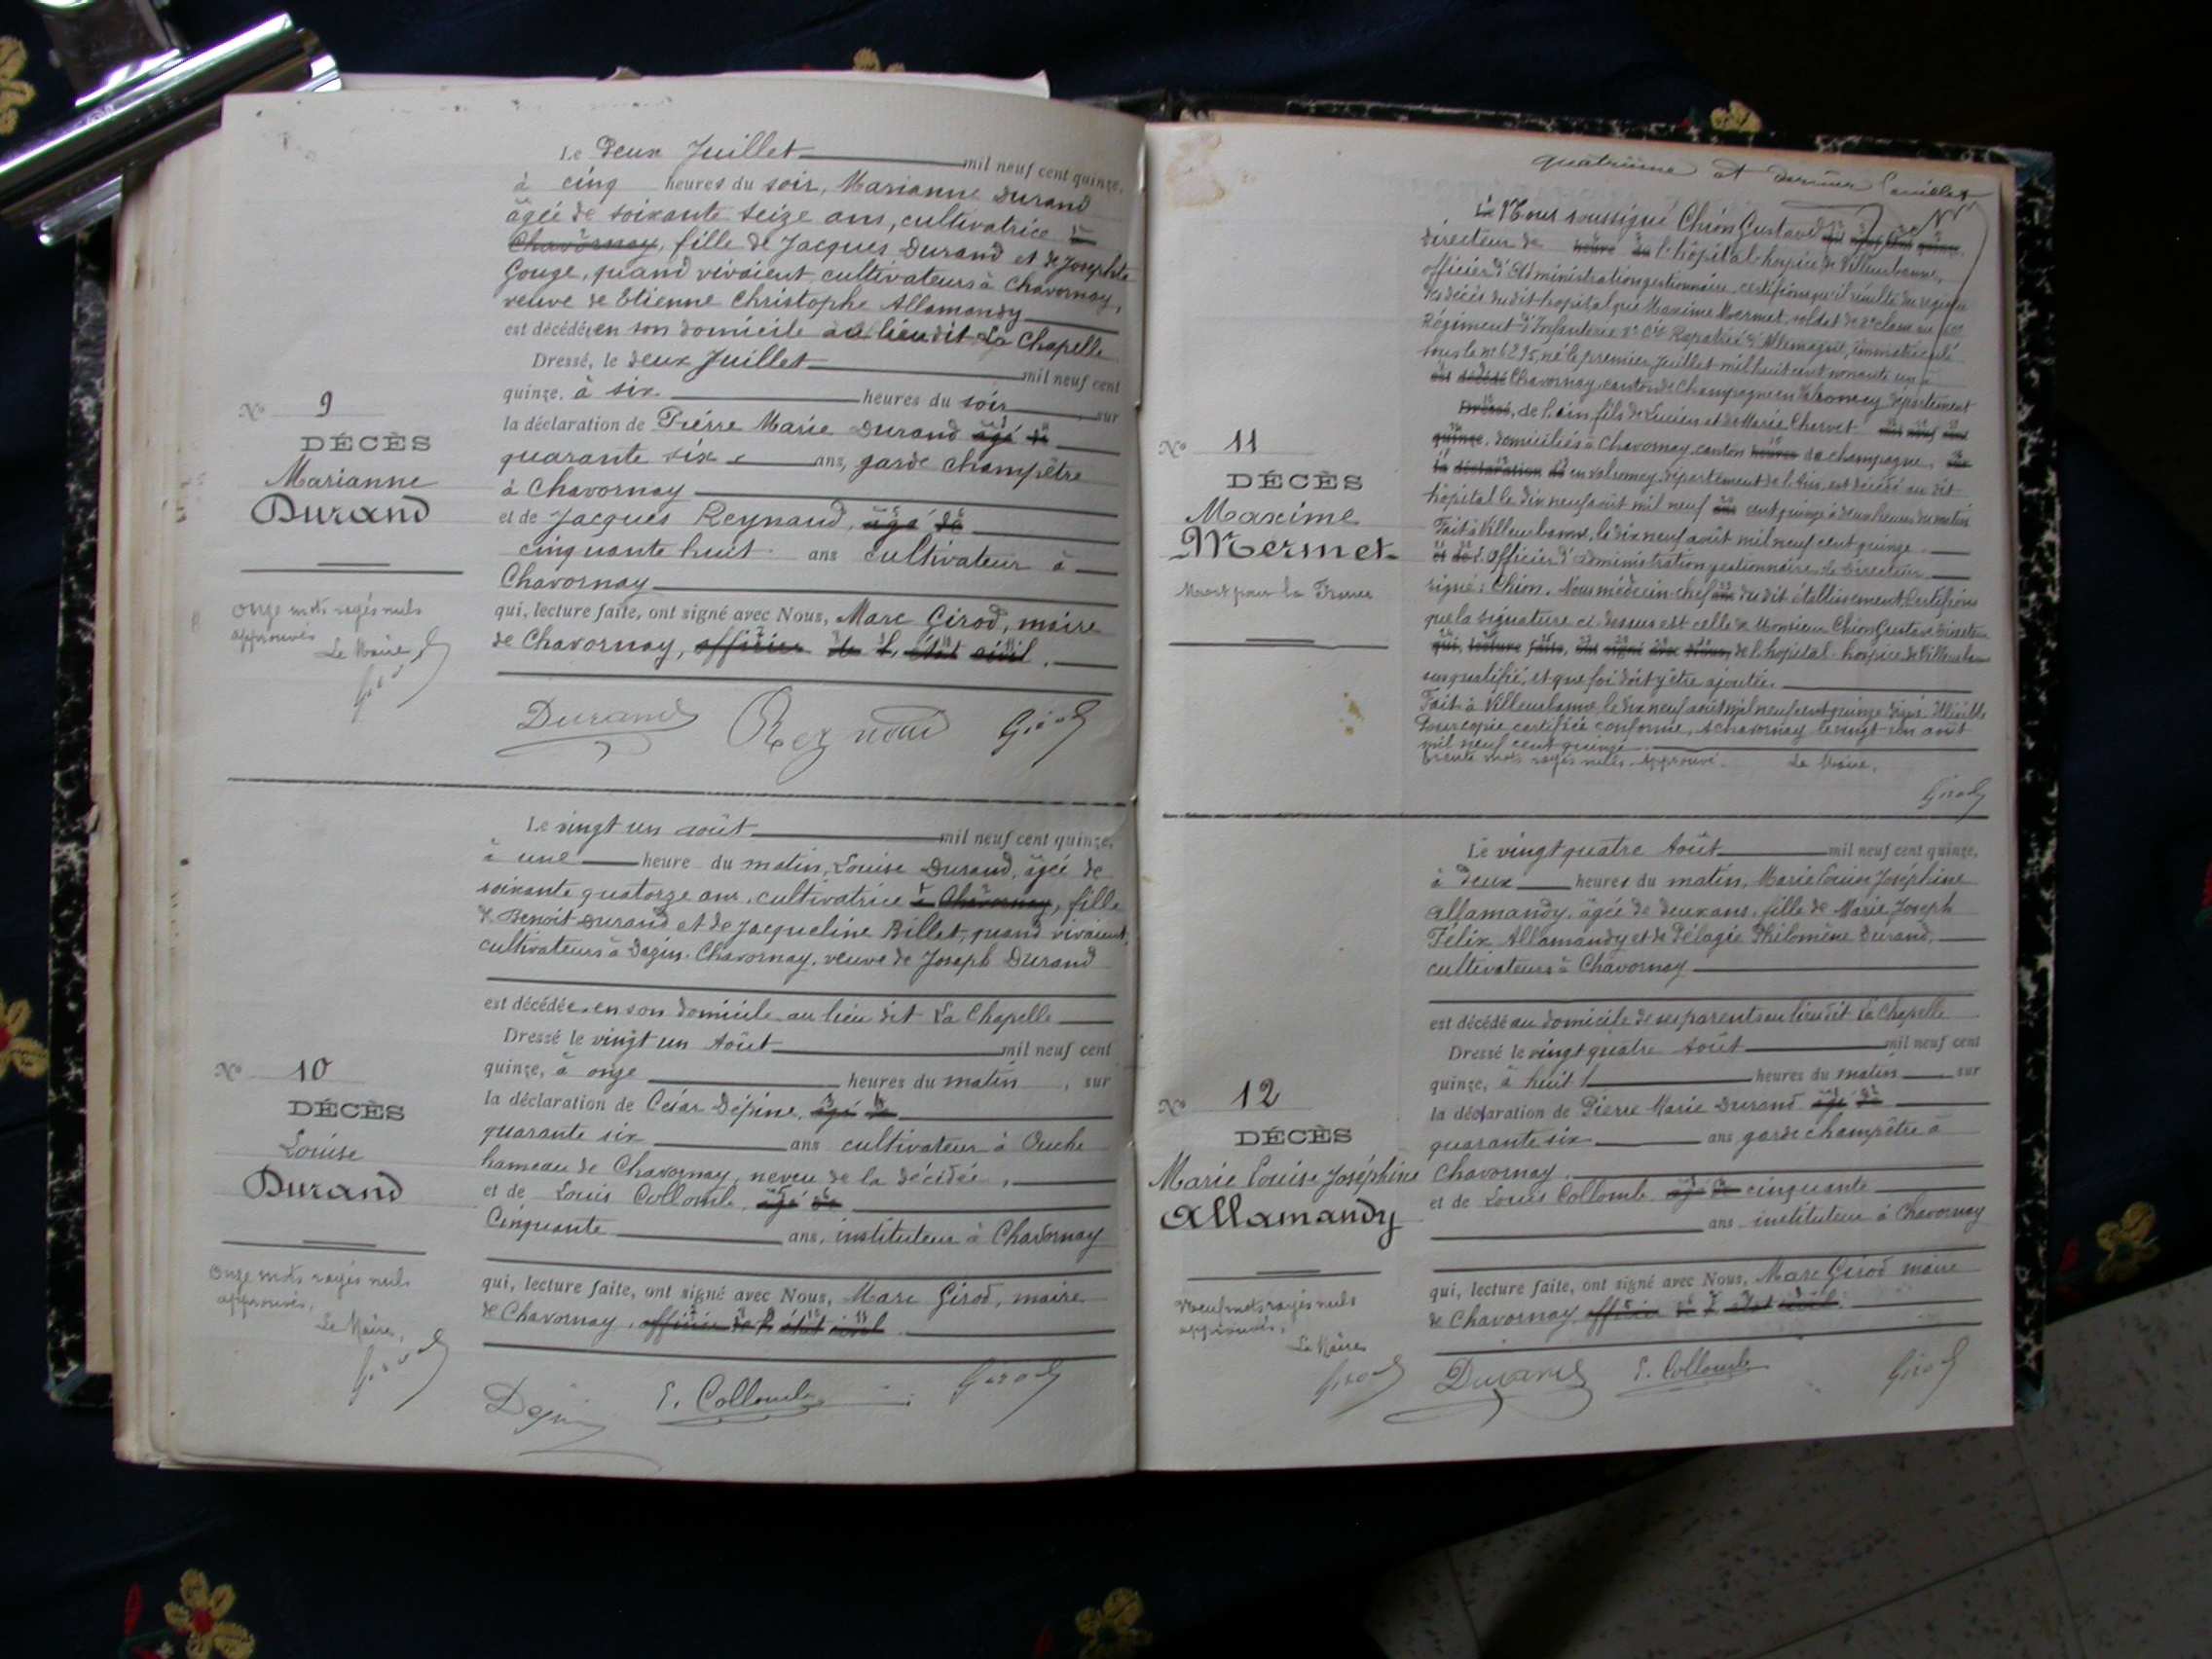 Le Deux Juillet mil neuf cent quinze,
à cinq heures du soir, Marianne Durand
âgée de soixante seize ans, cultivatrice à
Chavornay, fille de Jacques Durand et de Josephte
Gouge, quand vivaient cultivateurs à Chavornay,
veuve de Etienne Christophe Allamandy
est décédée, en son domicile au lieu dit La Chapelle
Dressé, le deux Juillet mil neuf cent
quinze, à six heures du soir, sur
la déclaration de Pierre Marie Durand âgé de
quarante six ans, garde champêtre
à Chavornay
et de Jacques Reynaud, âgé de
cinquante huit ans cultivateur à
Chavornay
qui, lecture faite, ont signé avec Nous, Marc Girod, maire
de Chavornay, officier de l'état civil.
Durand Reynaud Girod
No 9
DÉCÈS
Marianne
Durand
Onze mots rayés nuls
approuvés
Le Maire,
Girod
Le vingt un août mil neuf cent quinze,
à une heure du matin, Louise Durand, âgée de
soixante quatorze ans, cultivatrice à Chavornay, fille
de Benoit Durand et de Jacqueline Billet, quand vivaient,
cultivateurs à Dazin, Chavornay, veuve de Joseph Durand
est décédée, en son domicile au lieu dit La Chapelle
Dressé le vingt un Août mil neuf cent
quinze, à onze heures du matin, sur
la déclaration de César Dépine, âgé de
quarante six ans cultivateur à Ouche
hameau de Chavornay, neveu de la décédée,
et de Louis Collomb, âgé de
Cinquante ans, instituteur à Chavornay
qui, lecture faite, ont signé avec Nous, Marc Girod, maire
de Chavornay, officier de l'état civil
E. Collomb Girod
No 10
DÉCÈS
Louise
Durand
Onze mots rayés nuls
approuvés,
Le Maire,
Girod
quatrième et dernier feuillet
Le Nous soussigné Chion Gustave
directeur de l'hôpital-hospice de Villeurbanne,
officier d'Administration gestionnaire, certifions qu'il résulte du registre
des décès dudit hôpital que Maxime Mermet, soldat de 2e classe au
Régiment d'Infanterie Rapatrié d'Allemagne, immatriculé
sous le no 6295, né le premier Juillet mil huit cent nonante un à
est décédé Chavornay, canton de Champagne en Valromey, département
Dressé, de l'Ain, fils de Lucien et de Marie Charvet mil neuf cent
quinze, domiciliés à Chavornay, canton heures de Champagne, sur
la déclaration de en Valromey, département de l'Ain, est décédé au dit
hôpital le dix neuf août mil neuf ans cent quinze à deux heures du matin
Fait à Villeurbanne, le dix neuf août mil neuf cent quinze
et de L'officier d'administration gestionnaire, Le Directeur
signé: Chion. Nous médecin-chef ans du dit établissement, Certifions
que la signature ci-dessus est celle de Monsieur Chion Gustave Directeur
qui, lecture faite, ont signé avec Nous, de l'hôpital-hospice de Villeurbanne
susqualifié, et que foi doit y être ajoutée.
Fait à Villeurbanne le dix neuf août mil neuf cent quinze Signé: Illisible
Pour copie certifiée conforme, à Chavornay le vingt un août
mil neuf cent quinze
trente mots rayés nuls. Approuvé. Le Maire,
Girod
No 11
DÉCÈS
Maxime
Mermet
Mort pour la France
Le vingt quatre Août mil neuf cent quinze,
à deux heures du matin, Marie Louise Joséphine
Allamandy, âgée de deux ans, fille de Marie Joseph
Félix Allamandy et de Pélagie Philomène Durand,
cultivateurs à Chavornay
est décédé au domicile de ses parents au lieu dit La Chapelle
Dressé le vingt quatre Août mil neuf cent
quinze, à huit heures du matin sur
la déclaration de Pierre Marie Durand âgé de
quarante six ans garde champêtre à
Chavornay.
et de Louis Collomb âgé de cinquante
ans instituteur à Chavornay
qui, lecture faite, ont signé avec Nous, Marc Girod maire
de Chavornay officier de l'état civil.
Durand E. Collomb Girod
No 12
DÉCÈS
Marie Louise Joséphine
Allamandy
Neuf mots rayés nuls
approuvés,
Le Maire
Girod